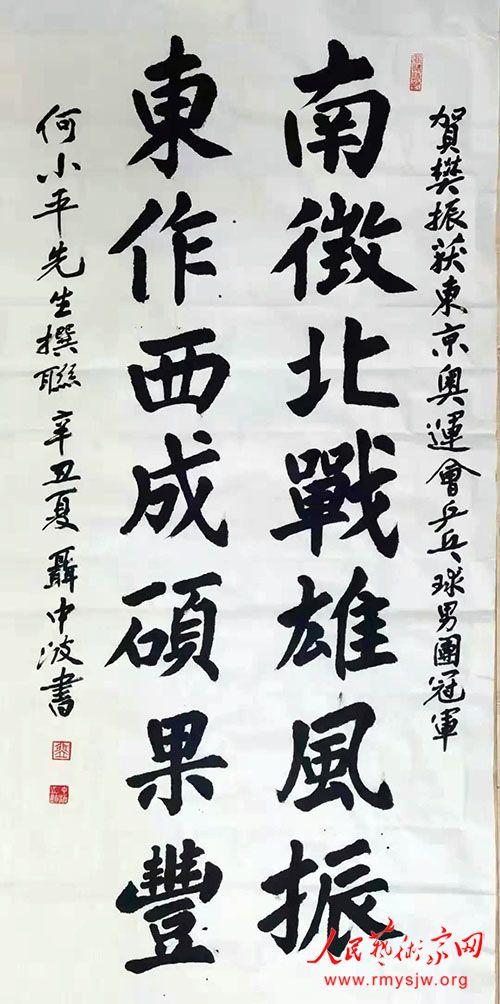 賀樊振获東京奥運會乒乓球男團冠軍
南徵北戰雄風振
東作西成碩果豐
何小平先生撰聯 辛丑夏 聶中波書
人民藝術家网
www.rmysjw.org